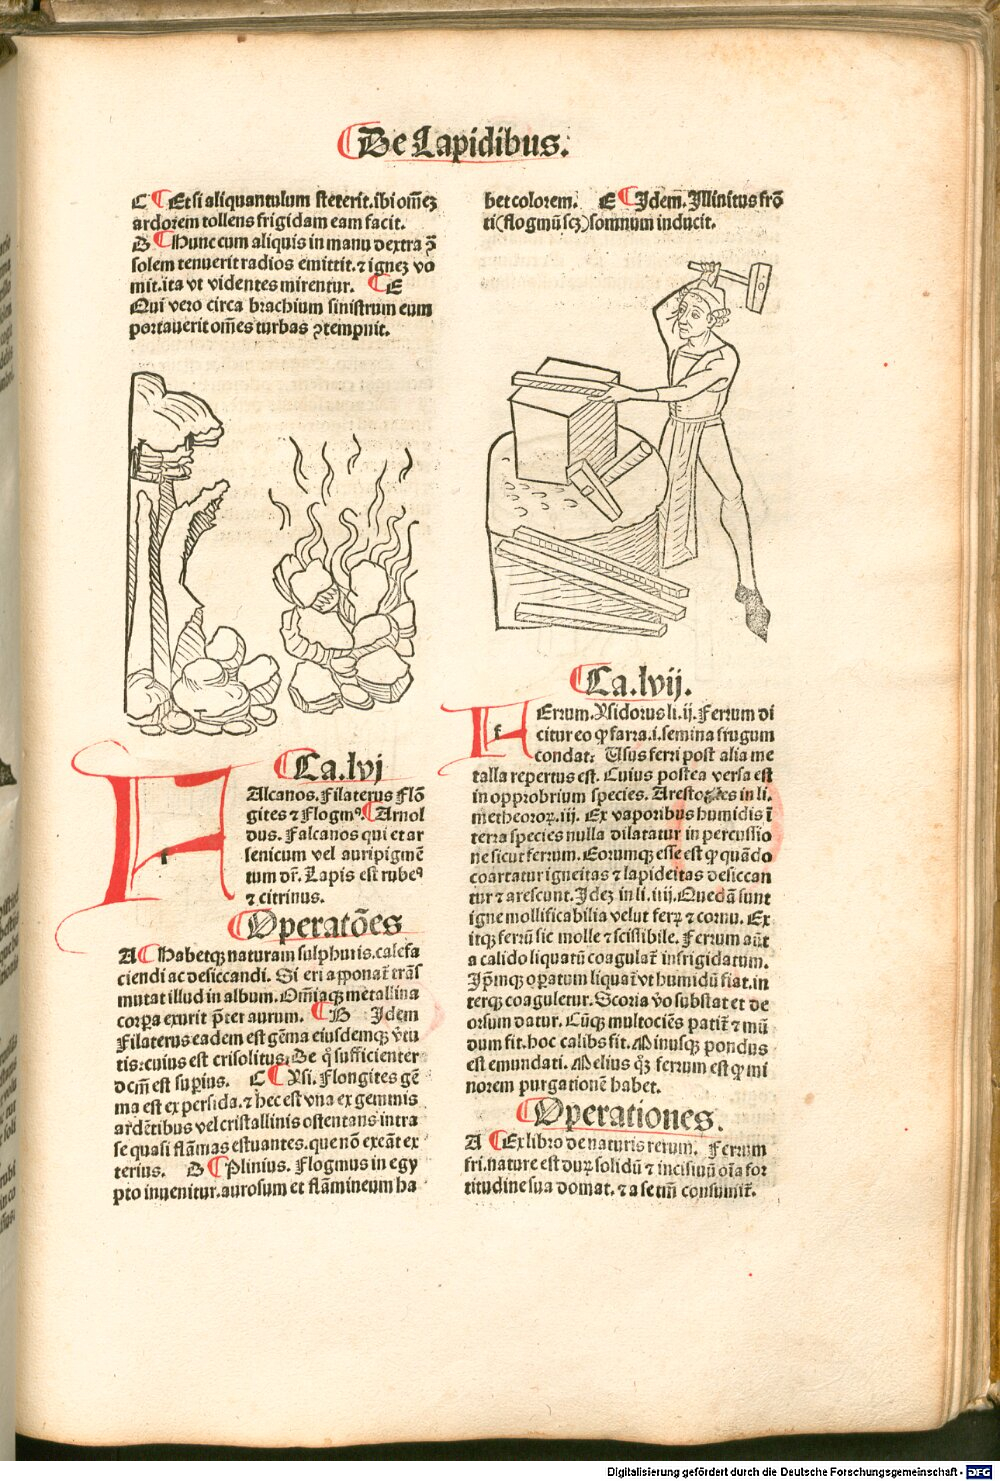 De Lapidibus.
C Et si aliquantulum steterit. ibi om̄ez
ardorem tollens frigidam eam facit.
D Hunc cum aliquis in manu dextra ꝑ̄
solem tenuerit radios emittit. ⁊ ignez vo
mit. ita vt videntes mirentur. E
Qui vero circa brachium sinistrum eum
portauerit om̄es turbas ꝯtempnit.
Ca. lvj
FAlcanos. Filaterus Flō
gites ⁊ Flogmꝰ. Arnol
dus. Falcanos qui et ar
senicum vel auripigmē
tum dr̄. Lapis est rubeꝰ
⁊ citrinus.
Operatōes
A Habetqꝫ naturam sulphuris. calefa
ciendi ac desiccandi. Si eri apponat̄ trās
mutat illud in album. Om̄iaqꝫ metallina
corꝑa exurit p̄ter aurum. B Idem
Filaterus eadem est gēma eiusdemqꝫ v̄tu
tis: cuius est crisolitus. De q̊ sufficienter
dcm̄ est suꝑius. C Ysi. Flongites gē
ma est ex persida. ⁊ hec est vna ex gemmis
ardētibus vel cristallinis ostentans intra
se quasi flāmas estuantes. que nō exeāt ex
terius. D Plinius. Flogmus in egy
pto inuenitur. aurosum et flāmineum ha
bet colorem. E Idem. Illinitus frō
ti (flogmū scꝫ) somnum inducit.
Ca. lvij.
FErrum. Ysidorus li. ij. Ferrum di
citur eo ꝙ farra. i. semina frugum
condat. Usus ferri post alia me
talla repertus est. Cuius postea versa est
in opprobrium species. Arestoteles in li.
metheoroꝝ. iij. Ex vaporibus humidis ī
terra species nulla dilatatur in percussio
ne sicut ferrum. Eorumqꝫ esse est ꝙ quādo
coartatur igneitas ⁊ lapideitas desiccan
tur ⁊ arescunt. Idez in li. iiij. Quedā sunt
igne mollificabilia velut ferꝝ ⁊ cornu. Ex
itqꝫ ferrū sic molle ⁊ scissibile. Ferrum aūt
a calido liquatū coagulat̄ infrigidatum.
Ip̄mqꝫ oꝑatum liquat̄ vt humidū fiat. in
terqꝫ coaguletur. Scoria v̊o substat et de
orsum datur. Cūqꝫ multociēs patit̄ ⁊ mū
dum fit. hoc calibs fit. Minusqꝫ pondus
est emundati. Melius qꝫ ferrum est ꝙ mi
norem purgationē habet.
Operationes.
A Ex libro de naturis rerum. Ferrum
fri. nature est duꝝ solidū ⁊ incisiuū oīa for
titudine sua domat. ⁊ a se tm̄ consumit̄.
Digitalisierung gefördert durch die Deutsche Forschungsgemeinschaft - DFG